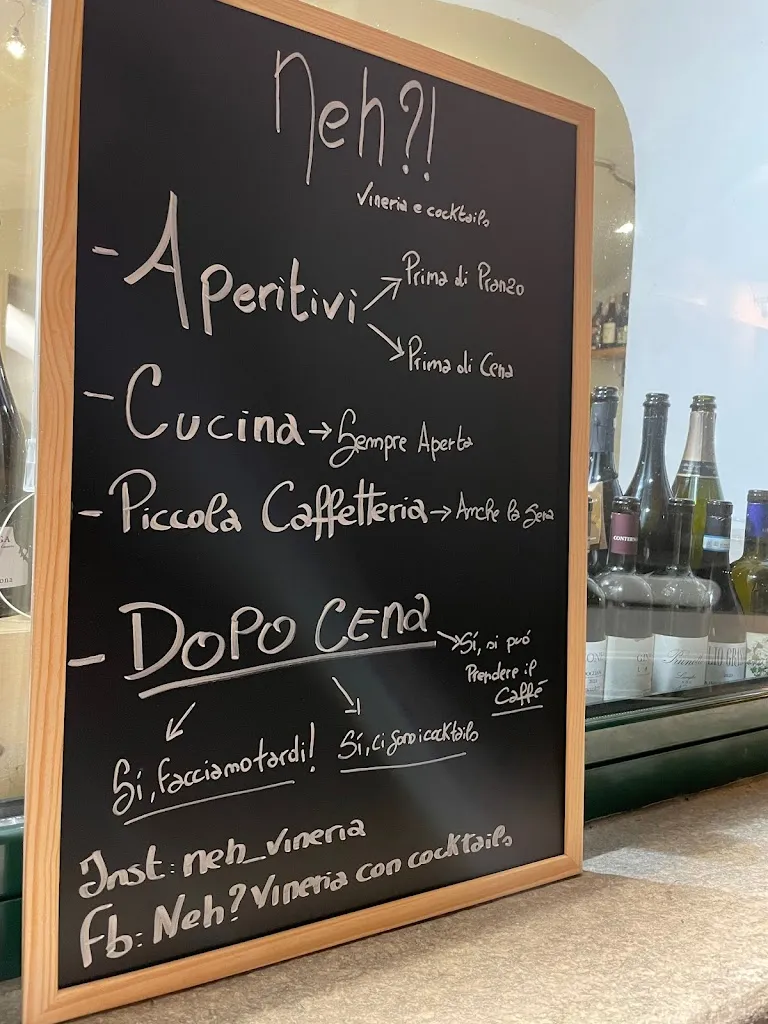 Neh?!
Vineria e cocktails
- Aperitivi
Prima di Pranzo
Prima di Cena
- Cucina → Sempre Aperta
- Piccola Caffetteria → Anche la Sera
- DOPO CENA
Sí, si può
Prendere il
Caffé
Sí, facciamo tardi!
Sí, ci sono i cocktails
Inst: neh_vineria
Fb: Neh? Vineria con cocktails